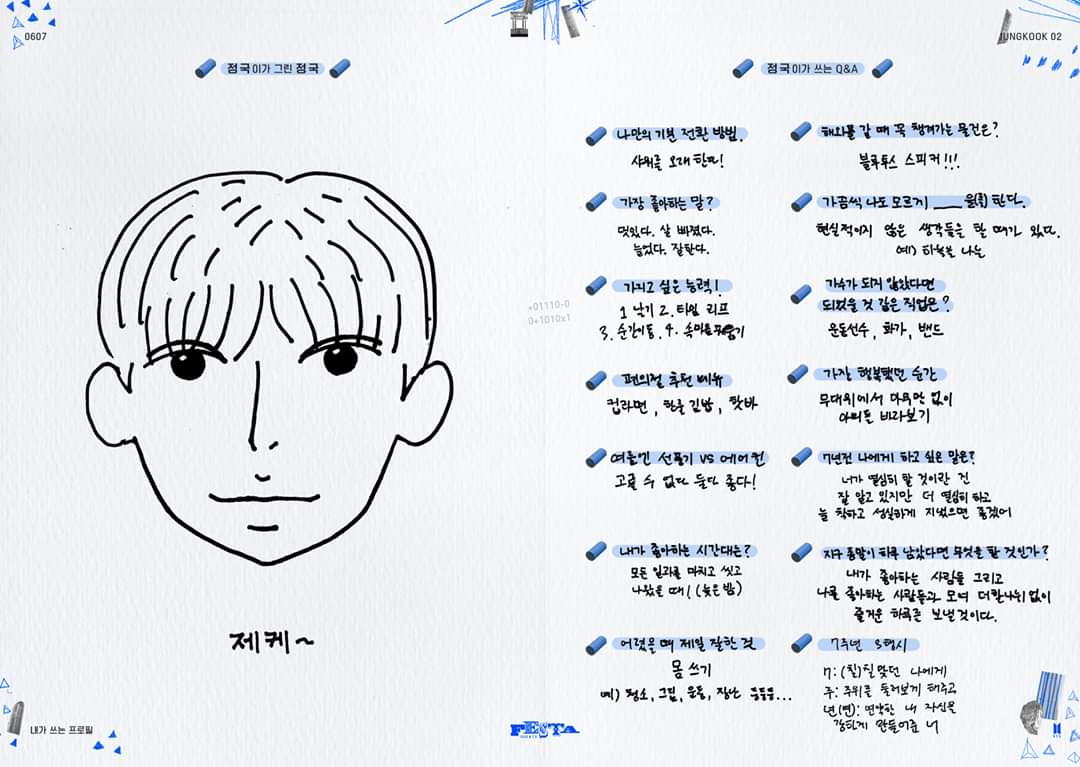 0607
JUNGKOOK 02
정국이가 그린 정국
제케~
내가 쓰는 프로필
정국이가 쓰는 Q&A
나만의 기분 전환 방법.
샤워를 오래 한다!
가장 좋아하는 말?
멋있다. 살 빠졌다.
늘었다. 잘한다.
가지고 싶은 능력!
1. 날기 2. 타임 리프
3. 순간이동. 4. 속마음
편의점 추천 메뉴
컵라면, 한줄 김밥, 핫바
여름엔 선풍기 VS 에어컨
고를 수 없다 둘다 좋다!
내가 좋아하는 시간대는?
모든 일과를 마치고 씻고
나왔을 때! (늦은 밤)
어렸을 때 제일 잘한 것
몸 쓰기
예) 청소, 그림, 운동, 장난 등등등...
해외를 갈 때 꼭 챙겨가는 물건은?
블루투스 스피커!!!
가끔씩 나도 모르게 ____을(를) 한다.
현실적이지 않은 생각들을 할 때가 있다.
예) 하늘을 나는
가수가 되지 않았다면
되었을 것 같은 직업은?
운동선수, 화가, 밴드
가장 행복했던 순간
무대위에서 아무말 없이
아미를 바라보기
7년전 나에게 하고 싶은 말은?
너가 열심히 할 것이란 건
잘 알고 있지만 더 열심히 하고
늘 착하고 성실하게 지냈으면 좋겠어
지구 종말이 하루 남았다면 무엇을 할 것인가?
내가 좋아하는 사람들 그리고
나를 좋아하는 사람들과 모여 더할나위없이
즐거운 하루를 보낼것이다.
7주년 3행시
7: (칠)칠맞던 나에게
주: 주위를 둘러보게 해주고
년(연): 연약한 내 자신을
강하게 만들어준 너
+01110-0
0+1010x1
FESTA
BTS